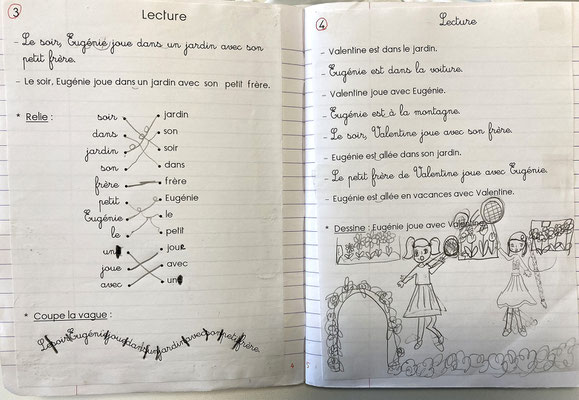 3
Lecture
- Le soir, Eugénie joue dans un jardin avec son
petit frère.
- Le soir, Eugénie joue dans un jardin avec son petit frère.
* Relie :
soir jardin
dans son
jardin soir
son dans
frère frère
petit Eugénie
Eugénie le
le petit
un joue
joue avec
avec un
* Coupe la vague :
Lesoir,Eugéniejouedansunjardinavecsonpetitfrère.
4
Lecture
- Valentine est dans le jardin.
- Eugénie est dans la voiture.
- Valentine joue avec Eugénie.
- Eugénie est à la montagne.
- Le soir, Valentine joue avec son frère.
- Eugénie est allée dans son jardin.
- Le petit frère de Valentine joue avec Eugénie.
- Eugénie est allée en vacances avec Valentine.
* Dessine : Eugénie joue avec Valentine.